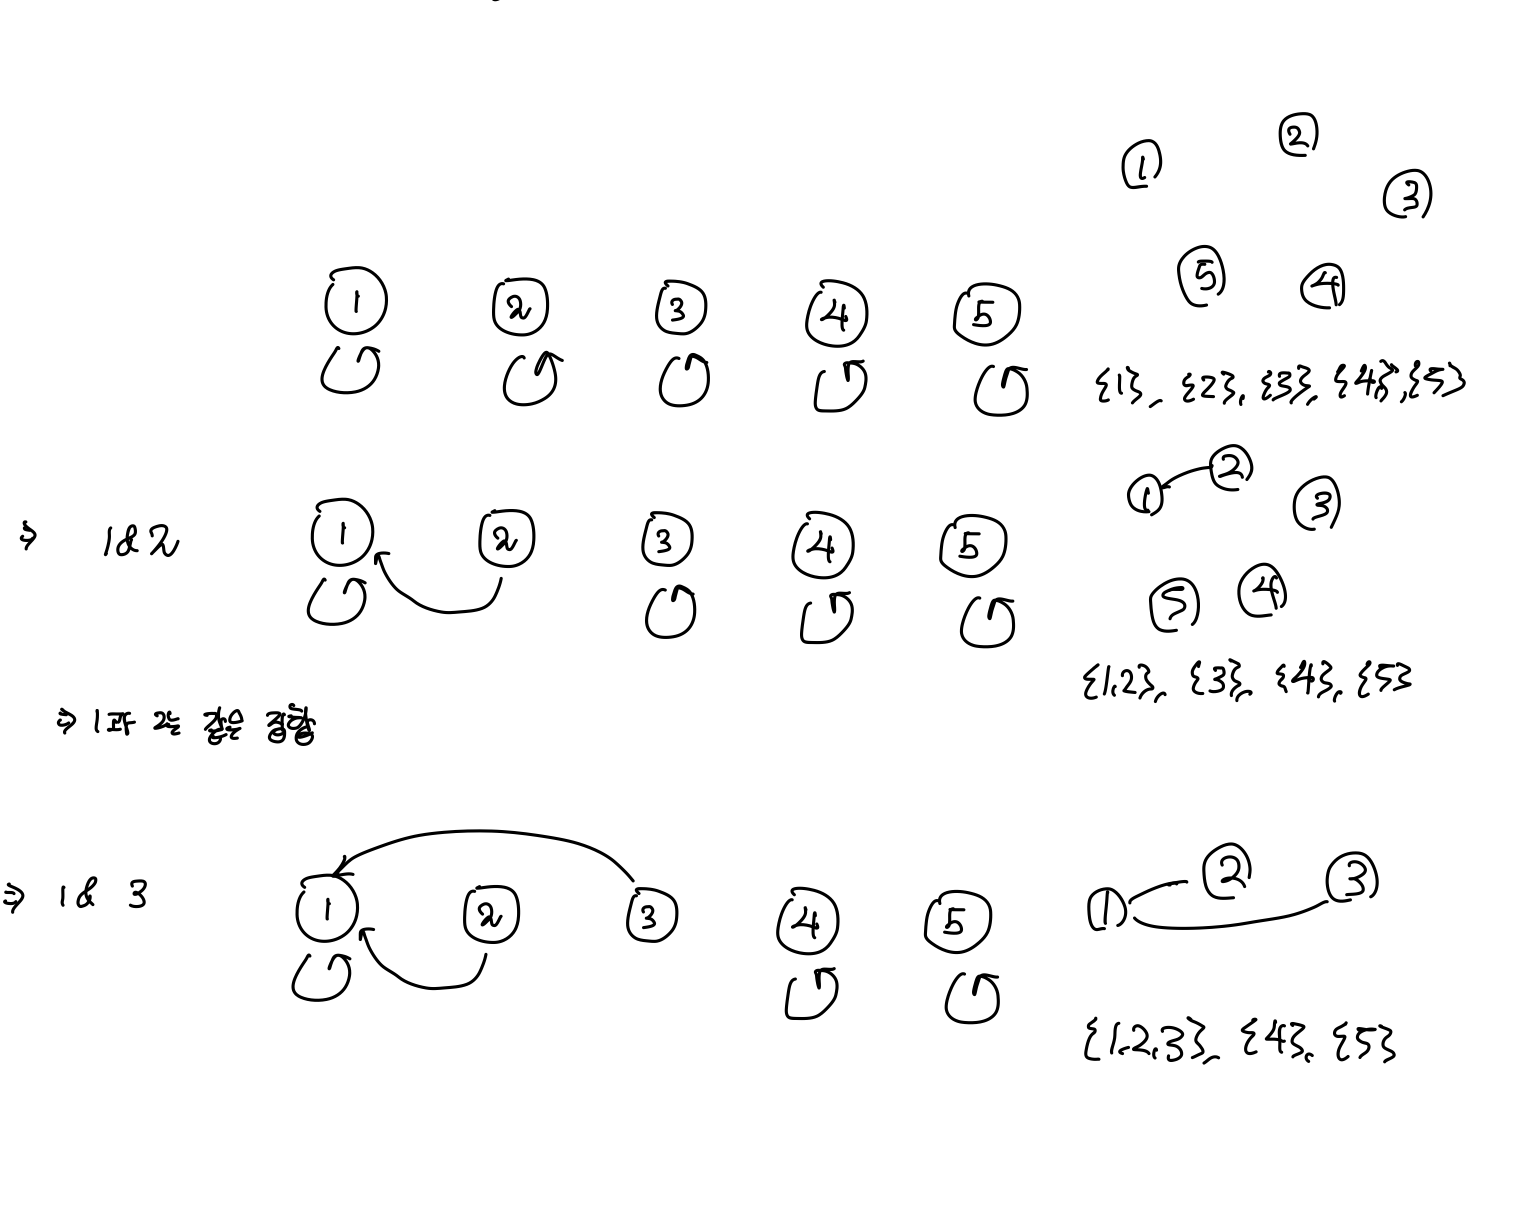 ① ② ③ ④ ⑤
① ② ③ ④ ⑤
{1}, {2}, {3}, {4}, {5}
⇒ 1&2 ① ② ③ ④ ⑤
① ② ③ ④ ⑤
{1,2}, {3}, {4}, {5}
⇒ 1과 2는 같은 집합
⇒ 1& 3 ① ② ③ ④ ⑤
① ② ③
{1,2,3}, {4}, {5}